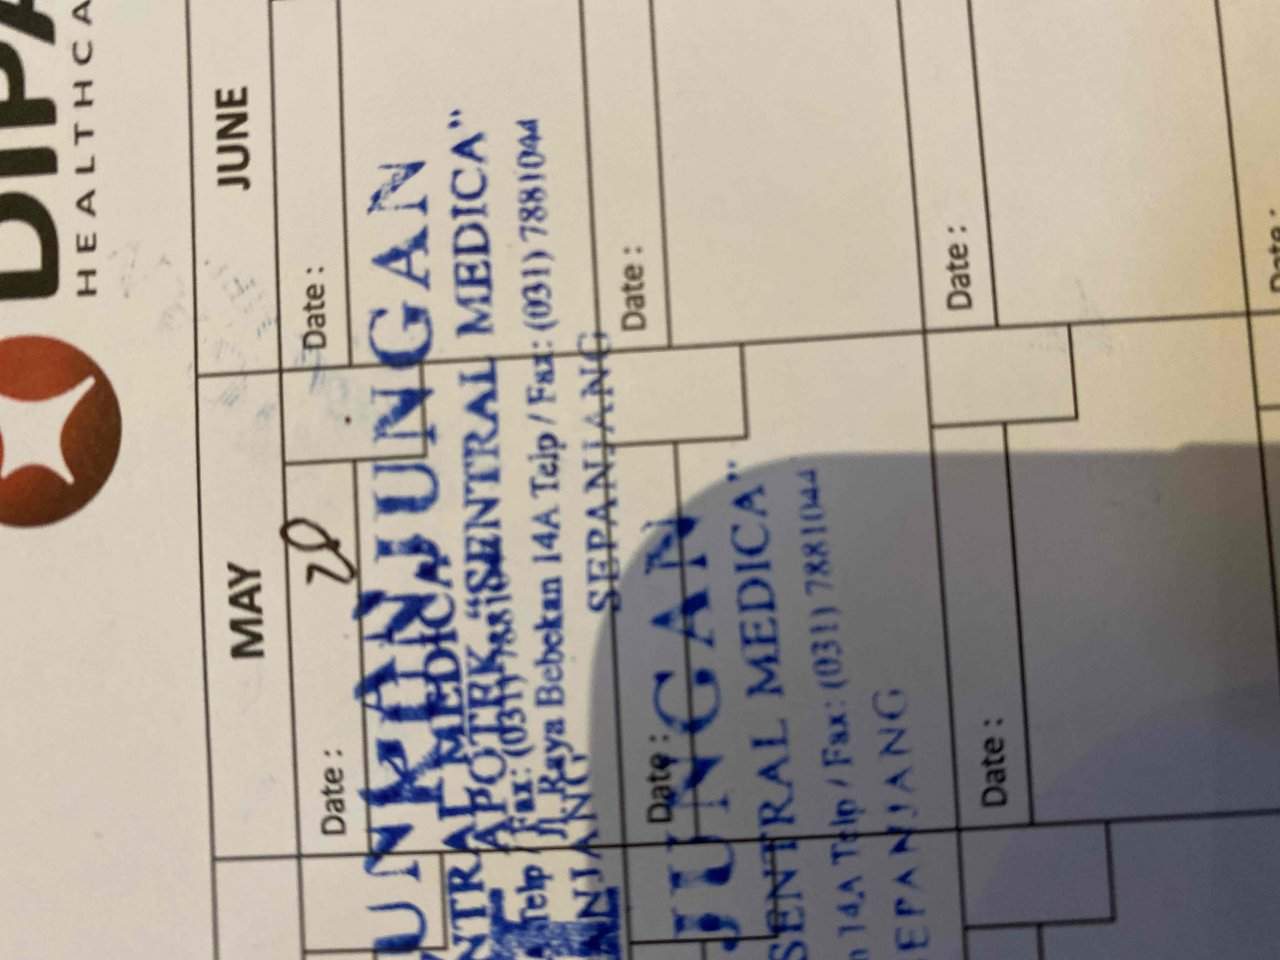 HEALTHCA
MAY
JUNE
Date :
20
Date :
KUNJUNGAN
APOTEK "SENTRAL MEDICA"
Jl. Raya Bebekan 14A Telp / Fax: (031) 7881044
SEPANJANG
MEDICA"
Telp / Fax: (031)
Date :
Date :
JUNGAN
SENTRAL MEDICA"
14A Telp / Fax: (031) 7881044
EPANJANG
Date :
Date :
Date :